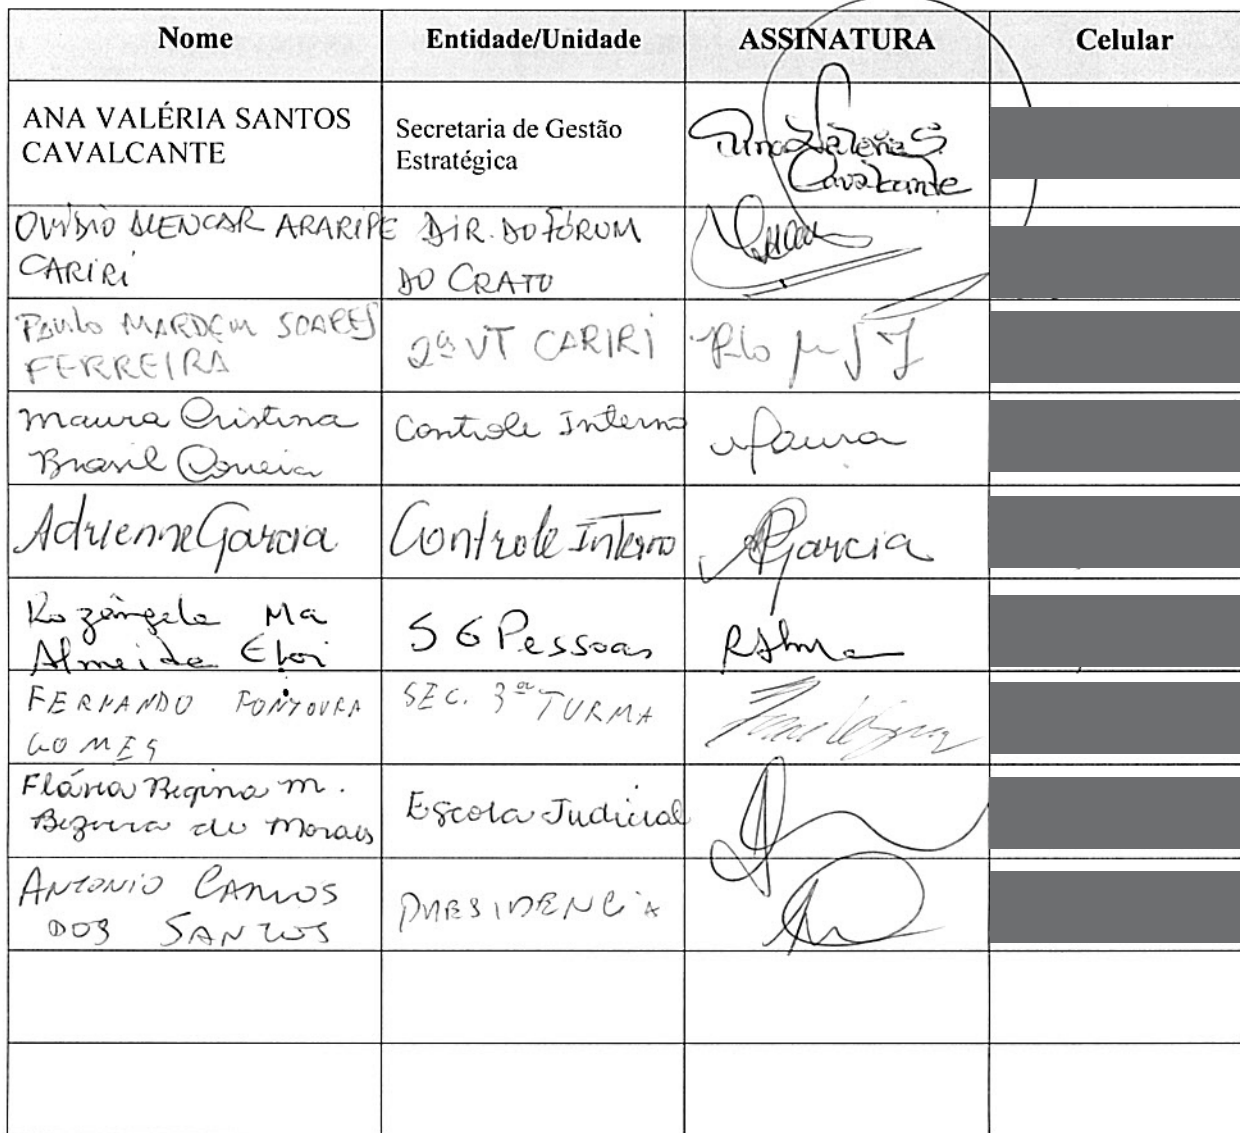 Nome Entidade/Unidade ASSINATURA Celular
ANA VALÉRIA SANTOS
CAVALCANTE
Secretaria de Gestão
Estratégica
Ana Valéria S.
Cavalcante
OVÍDIO ALENCAR ARARIPE
CARIRI
DIR. DO FÓRUM
DO CRATO
Paulo MARDEM SOARES
FERREIRA
2ª VT CARIRI
Maura Cristina
Brasil Correia
Controle Interno
Maura
Adrienne Garcia
Controle Interno
AGarcia
Rozângela Ma
Almeida Eloi
SG Pessoas
FERNANDO FONTOURA
GOMES
SEC. 3ª TURMA
Flávia Regina M.
Bezerra de Morais
Escola Judicial
ANTONIO CARLOS
DOS SANTOS
PRESIDENCIA